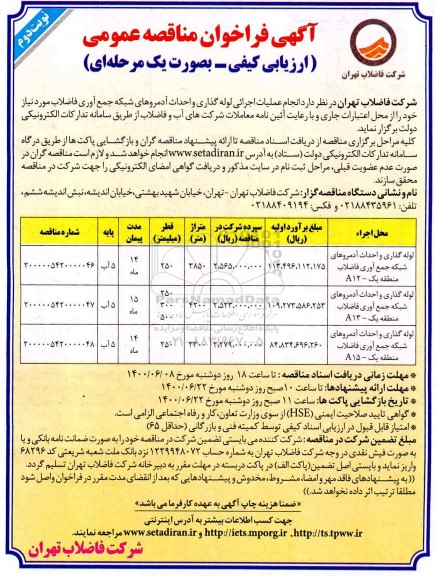 نوبت دوم
آگهی فراخوان مناقصه عمومی
(ارزیابی کیفی – بصورت یک مرحله‌ای)
شرکت فاضلاب تهران
شرکت فاضلاب تهران در نظر دارد انجام عملیات اجرائی لوله گذاری و احداث آدمروهای شبکه جمع آوری فاضلاب مورد نیاز
خود را از محل اعتبارات جاری و با رعایت آئین نامه معاملات شرکت های آب و فاضلاب از طریق سامانه تدارکات الکترونیکی
دولت برگزار نماید.
کلیه مراحل برگزاری مناقصه از دریافت اسناد مناقصه تا ارائه پیشنهاد مناقصه گران و بازگشایی پاکت ها از طریق درگاه
سامانه تدارکات الکترونیکی دولت (ستاد) به آدرس www.setadiran.ir انجام خواهد شد و لازم است مناقصه گران در
صورت عدم عضویت قبلی، مراحل ثبت نام در سایت مذکور و دریافت گواهی امضای الکترونیکی را جهت شرکت در مناقصه
محقق سازند.
نام و نشانی دستگاه مناقصه گزار: شرکت فاضلاب تهران - تهران، خیابان شهید بهشتی، خیابان اندیشه، نبش اندیشه ششم،
تلفن: ۰۲۱۸۸۴۳۵۹۶۱ و فکس: ۰۲۱۸۸۴۰۹۱۹۴
محل اجراء | مبلغ برآورد اولیه (ریال) | سپرده شرکت در مناقصه (ریال) | متراژ (متر) | قطر (میلیمتر) | مدت پیمان | پایه | شماره مناقصه
لوله گذاری و احداث آدمروهای شبکه جمع آوری فاضلاب منطقه یک – A۱۲ | ۱۱۳,۴۹۶,۱۱۲,۱۷۵ | ۲,۵۶۵,۰۰۰,۰۰۰ | ۳۸۵۰ | ۲۵۰ | ۱۴ ماه | ۵ آب | ۲۰۰۰۰۰۵۴۲۰۰۰۰۰۴۶
لوله گذاری و احداث آدمروهای شبکه جمع آوری فاضلاب منطقه یک – A۱۳ | ۱۰۹,۲۷۳,۵۸۶,۲۵۳ | ۲,۵۲۳,۰۰۰,۰۰۰ | ۲۵۰ ۳۰۰ | ۱۵ ماه | ۵ آب | ۲۰۰۰۰۰۵۴۲۰۰۰۰۰۴۷
لوله گذاری و احداث آدمروهای شبکه جمع آوری فاضلاب منطقه یک – A۱۵ | ۸۴,۸۳۴,۶۹۶,۲۶۰ | ۲۵۰ | ۱۴ ماه | ۵ آب | ۲۰۰۰۰۰۵۴۲۰۰۰۰۰۴۸
* مهلت زمانی دریافت اسناد مناقصه : تا ساعت ۱۸ روز دوشنبه مورخ ۱۴۰۰/۰۶/۰۸
* مهلت ارائه پیشنهادها: تا ساعت ۱۰ صبح روز دوشنبه مورخ ۱۴۰۰/۰۶/۲۲
* تاریخ بازگشایی پاکت ها: ساعت ۱۱ صبح روز دوشنبه مورخ ۱۴۰۰/۰۶/۲۲
* گواهی تایید صلاحیت ایمنی (HSE) از سوی وزارت تعاون، کار و رفاه اجتماعی الزامی است.
* امتیاز قابل قبول در ارزیابی اسناد کیفی توسط کمیته فنی و بازرگانی (حداقل ۶۵)
مبلغ تضمین شرکت در مناقصه : شرکت کننده می بایستی تضمین شرکت در مناقصه خود را به صورت ضمانت نامه بانکی و یا
به صورت فیش نقدی در وجه شرکت فاضلاب تهران به شماره حساب ۱۲۲۹۹۴۸۰۷۲ نزد بانک ملت شعبه شریعتی کد ۶۸۲۹۶
واریز نماید و بایستی اصل تضمین (پاکت الف) در پاکت دربسته در مهلت مقرر به دبیرخانه شرکت فاضلاب تهران تسلیم گردد.
((به پیشنهادهای فاقد مهر و امضا، مشروط، مخدوش و پیشنهادهایی که بعد از انقضای مدت مقرر در فراخوان واصل شود
مطلقا ترتیب اثر داده نخواهد شد.))
«ضمنا هزینه چاپ آگهی به عهده کارفرما می باشد»
جهت کسب اطلاعات بیشتر به آدرس اینترنتی
http://ts.tpww.ir , http://iets.mporg.ir و www.setadiran.ir مراجعه نمایند.
شرکت فاضلاب تهران